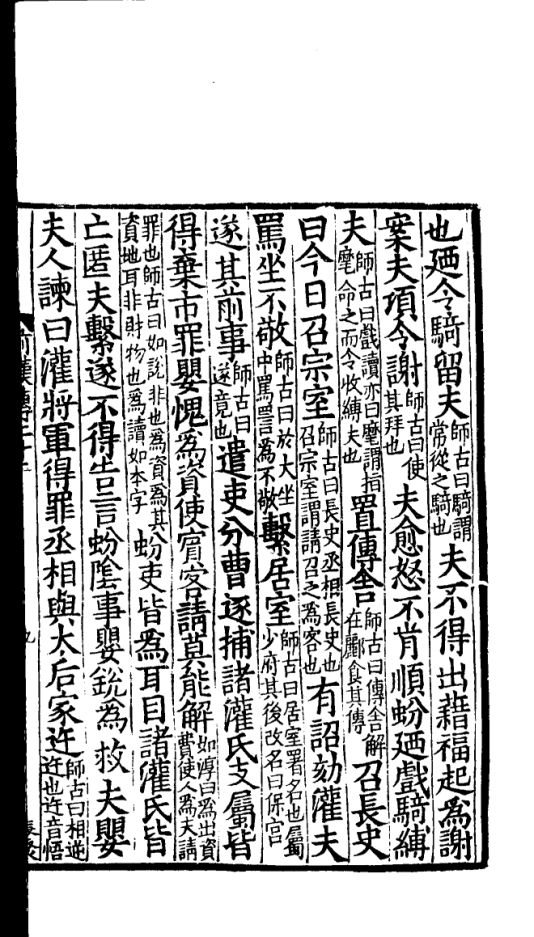 也廼令騎留夫師古曰騎謂常從之騎也夫不得出藉福起爲謝
案夫項令謝師古曰使其拜也夫愈怒不肯順蚡廼戲騎縛
夫師古曰戲讀亦曰麾謂指麾命之而令收縛夫也置傳舍師古曰傳舍解在酈食其傳召長史
曰今日召宗室師古曰長史丞相長史也召宗室謂請召之爲客也有詔劾灌夫
罵坐不敬師古曰於大坐中罵詈爲不敬繫居室師古曰居室署名也屬少府其後改名曰保宮
遂其前事師古曰遂竟也遣吏分曹逐捕諸灌氏支屬皆
得棄市罪嬰愧爲資使賓客請莫能解如淳曰爲出資費使人爲夫請
罪也師古曰如說非也爲資爲其資地耳非財物也爲讀如本字蚡吏皆爲耳目諸灌氏皆
亡匿夫繫遂不得告言蚡陰事嬰銳為救夫嬰
夫人諫曰灌將軍得罪丞相與太后家迕師古曰相逆迕也迕音悟